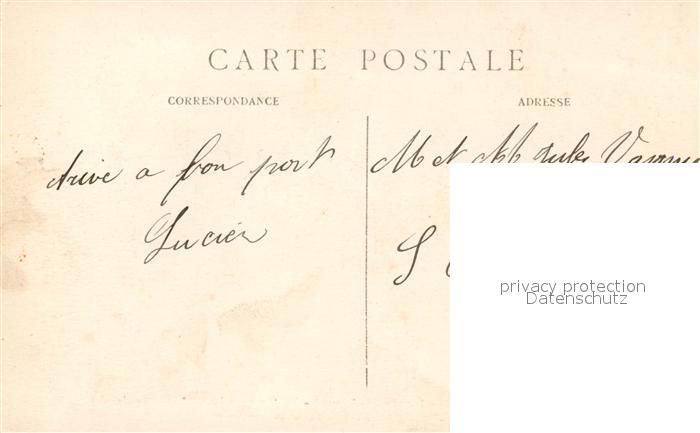 CARTE POSTALE
CORRESPONDANCE
ADRESSE
Arive a bon port
Lucien
M et M Jules
S
privacy protection
Datenschutz